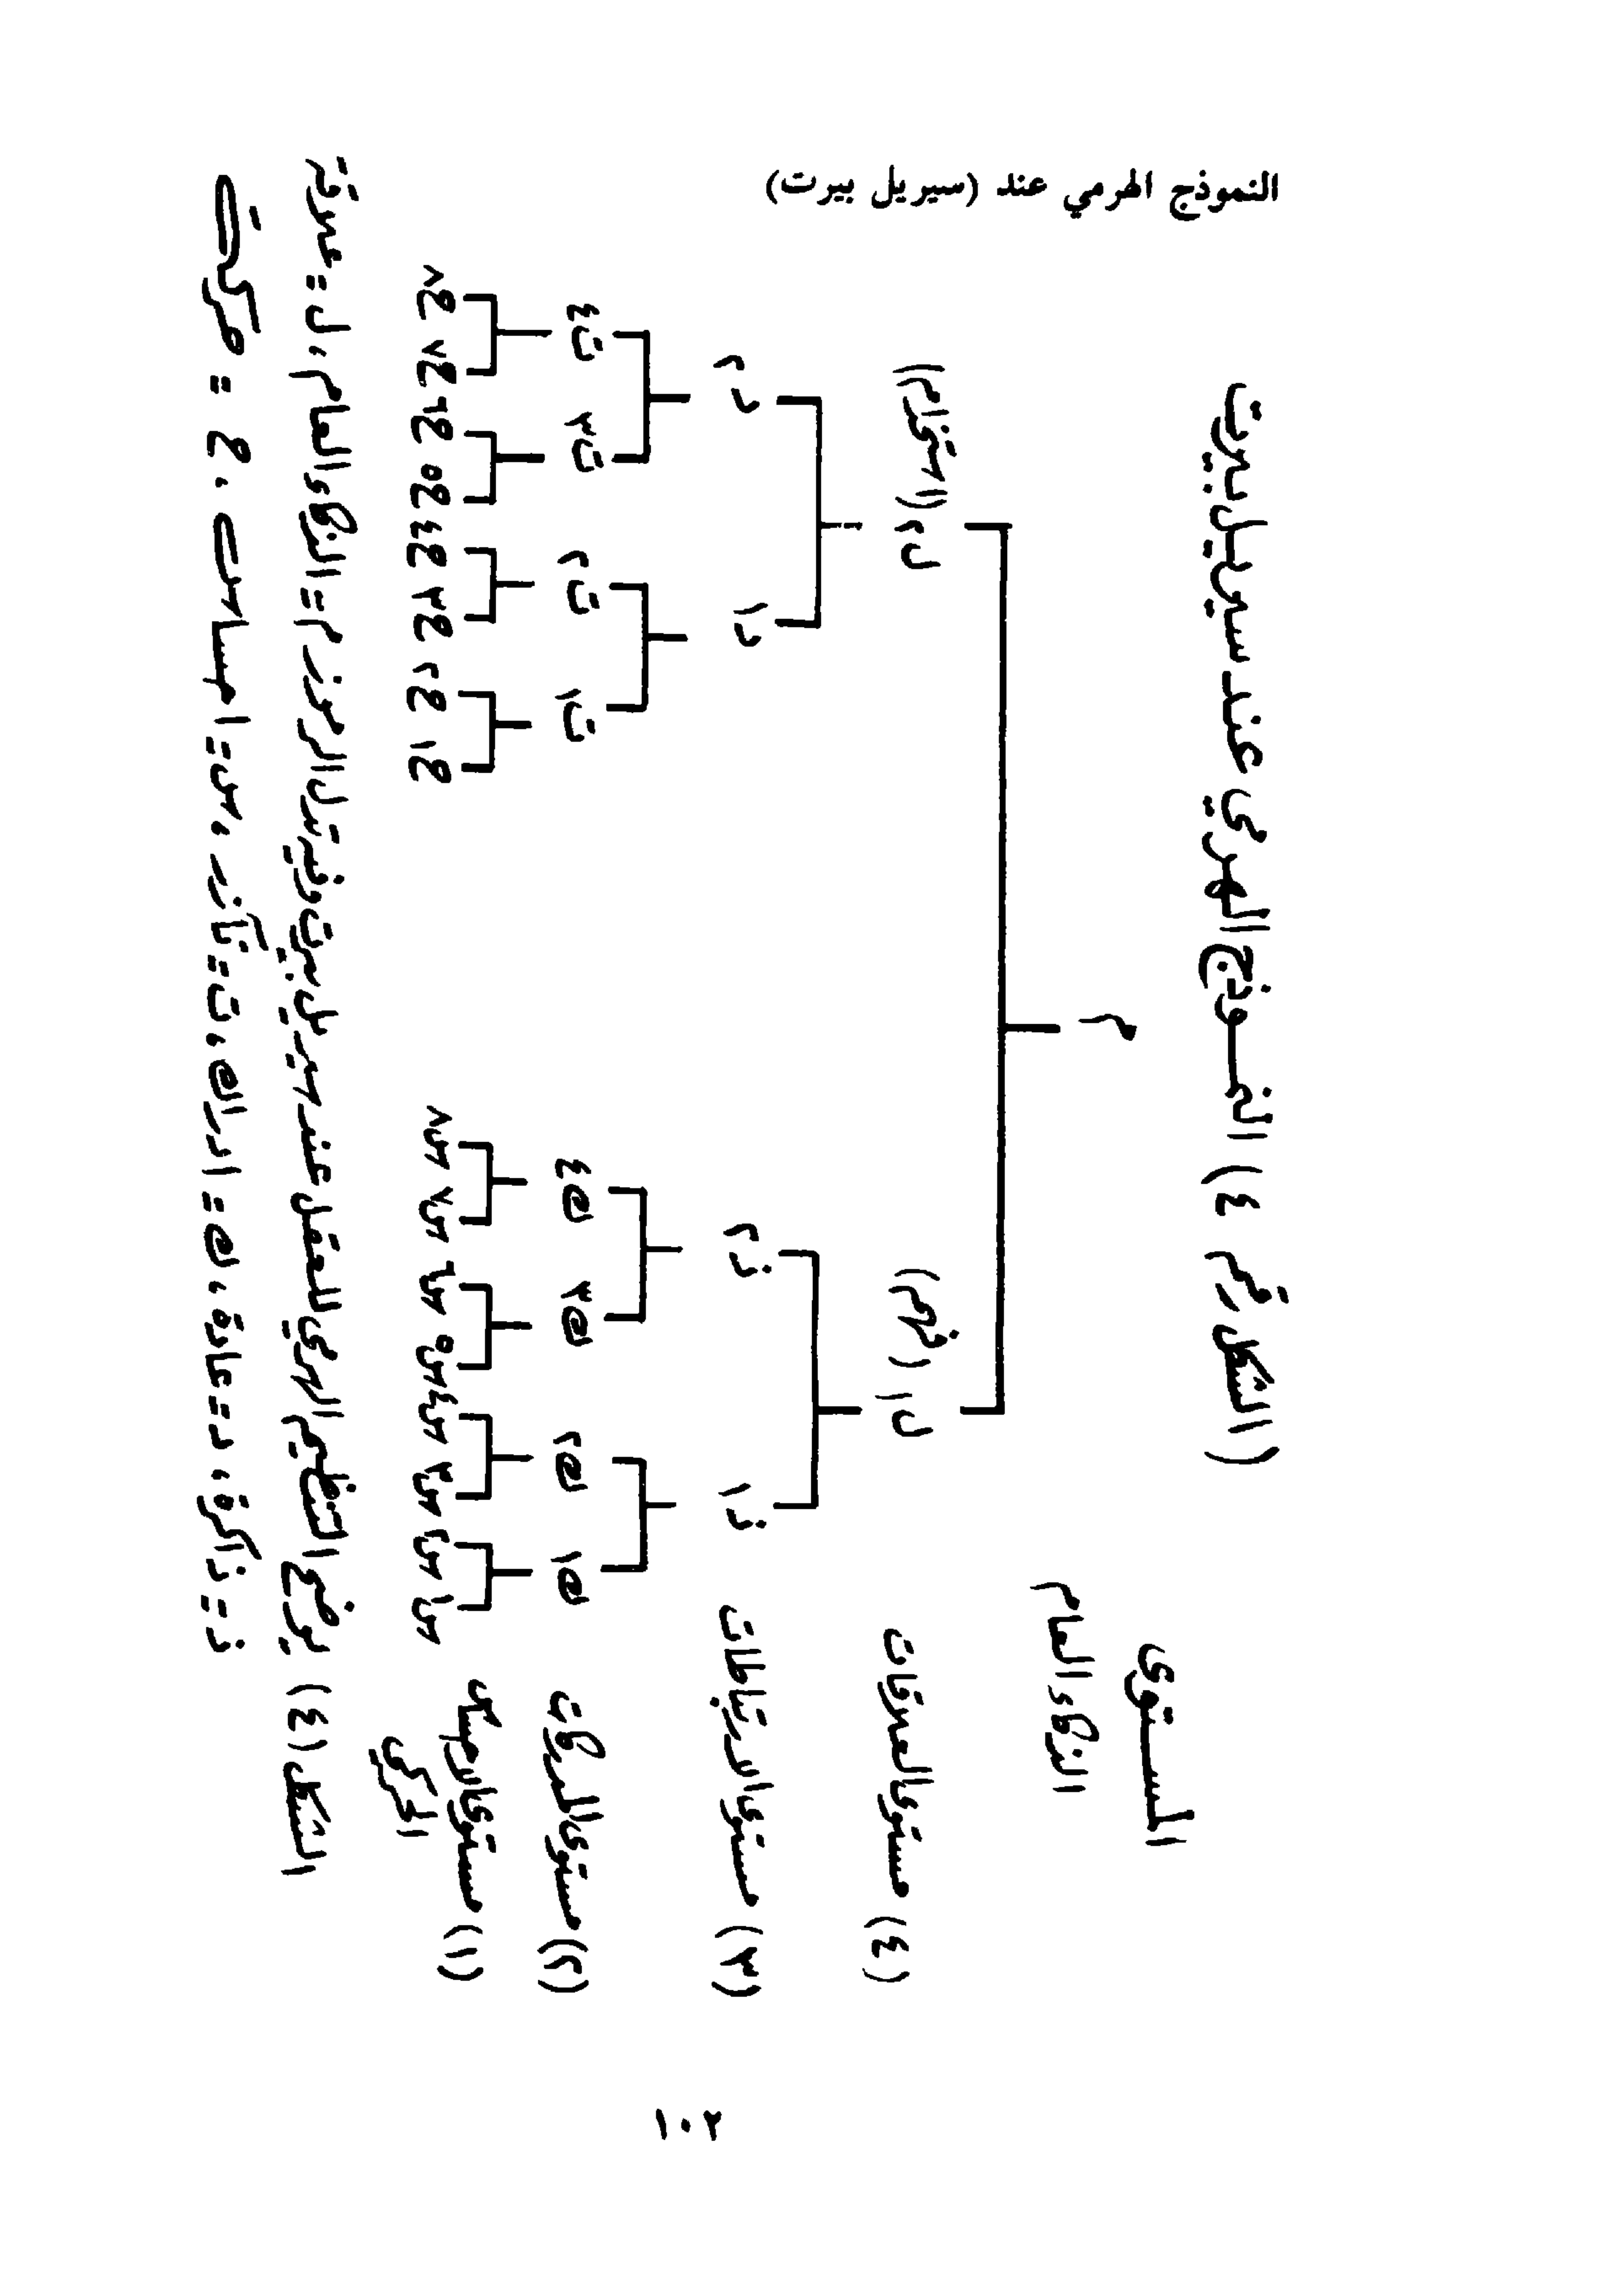 النموذج الهرمي عند (سيريل بيرت)
(الشكل رقم ٤) النموذج الهرمي عند سيريل بيرت
المستوى
الذكاء العام
م
(٤) مستوى العلاقات
ل١ (فهم) ل٢ (استخدام)
(٣) مستوى الارتباطات
ذ١ ذ٢ د١ د٢
(٢) مستوى المدركات
ك١ ك٢ ك٣ ك٤ ت١ ت٢ ت٣ ت٤
(١) مستوى الإحساس
الحركي
س١ س٢ س٣ س٤ س٥ س٦ س٧ س٨ ح١ ح٢ ح٣ ح٤ ح٥ ح٦ ح٧ ح٨
الشكل (٤) يوضح التنظيم الهرمي للعقل عند سيريل بيرت وفيه تدل الرموز م = الذكاء العام، ل =
ذ = ذاكرة، د = عادة، ك = ادراك، ت = تآزر، س = احساسات، ح = حركات
١٠٢